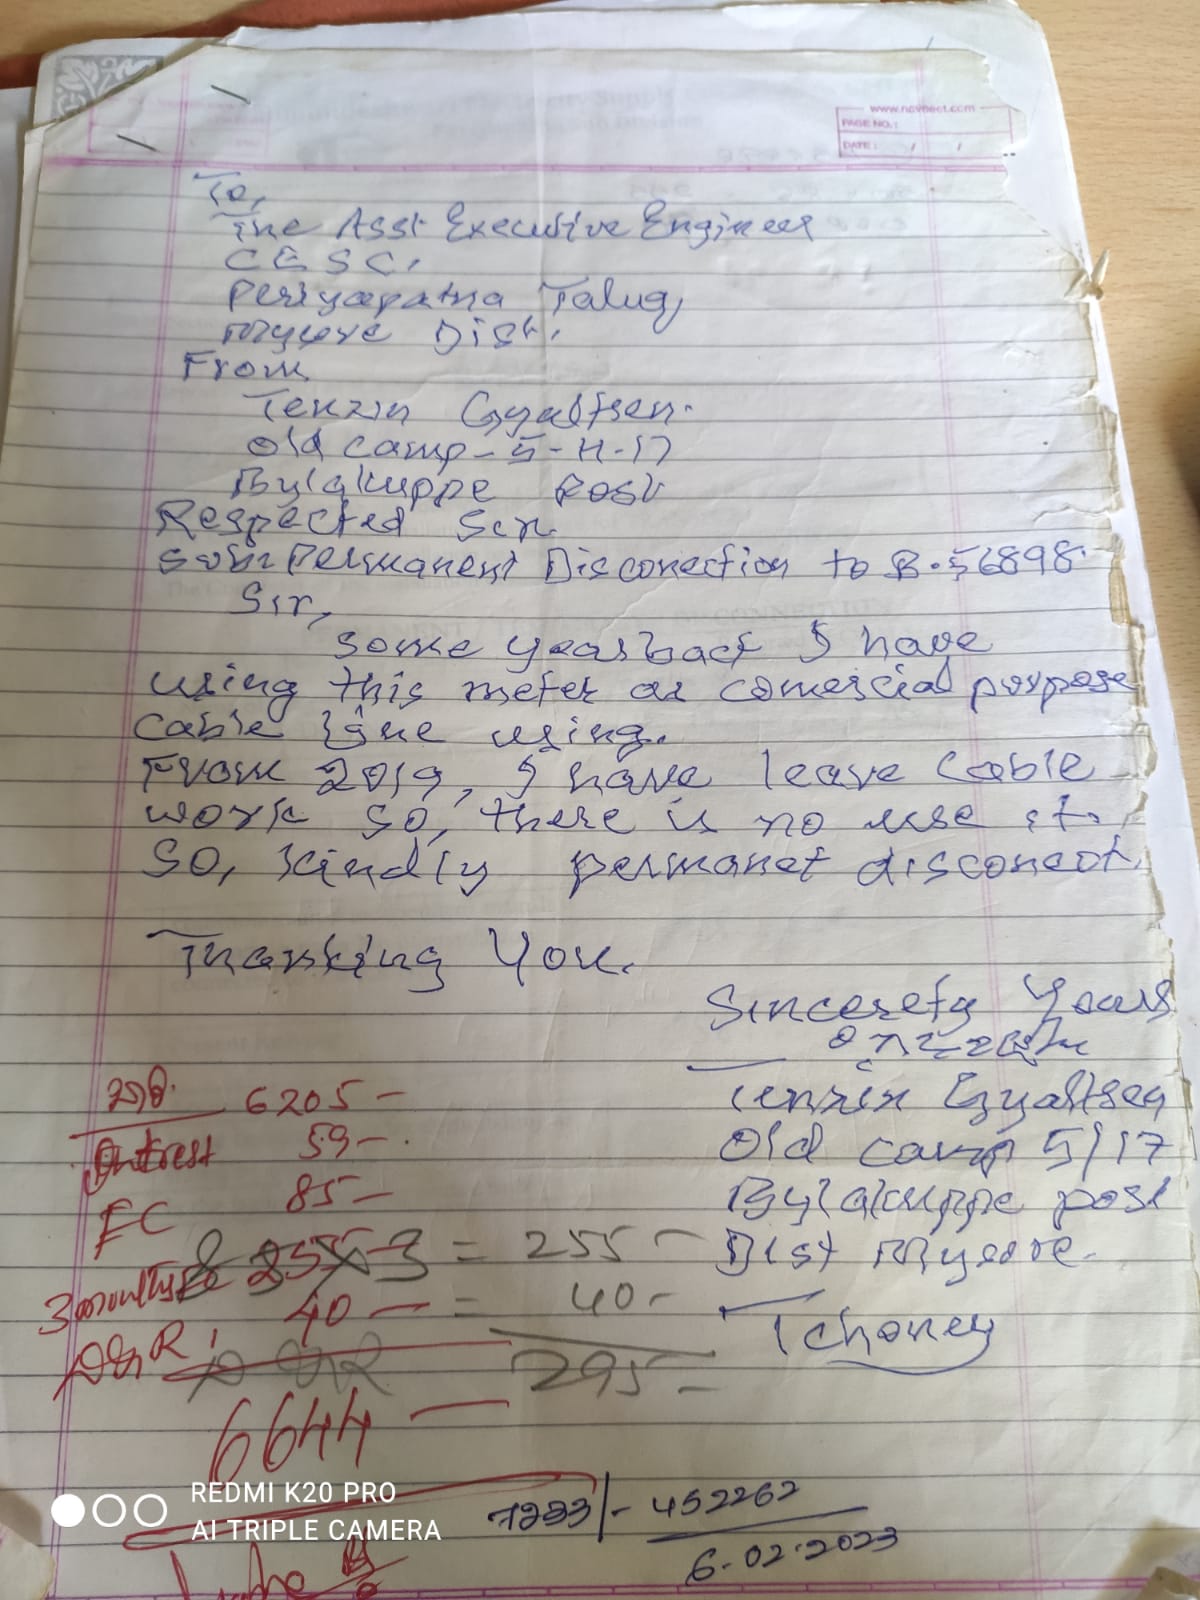 www.navneet.com
PAGE NO.:
DATE: / /
To,
The Asst Executive Engineer
CESC,
Periyapatna Taluq
Mysore Dist.
From
Tenzin Gyaltsen.
Old camp-5-H-17
Bylakuppe Post
Respected Sir.
Sub: Permanent Disconection to B.56898.
Sir,
Some year back I have
using this meter as comercial purpose
cable line using.
From 2019, I have leave cable
work so, there is no use it.
So, kindly permanet disconect.
Thanking You.
Sincerety Yours
Tenzin Gyaltsen
Old camp 5/17
Bylakuppe post
Dist Mysore.
Tchoney
6205 -
Intrest 59 -.
FC 85 -
3month FC 255 - 85x3 = 255 -
D&R 40 - = 40 -
D&R 295 -
6644 -
7233/- 452262
6.02.2023
REDMI K20 PRO
AI TRIPLE CAMERA